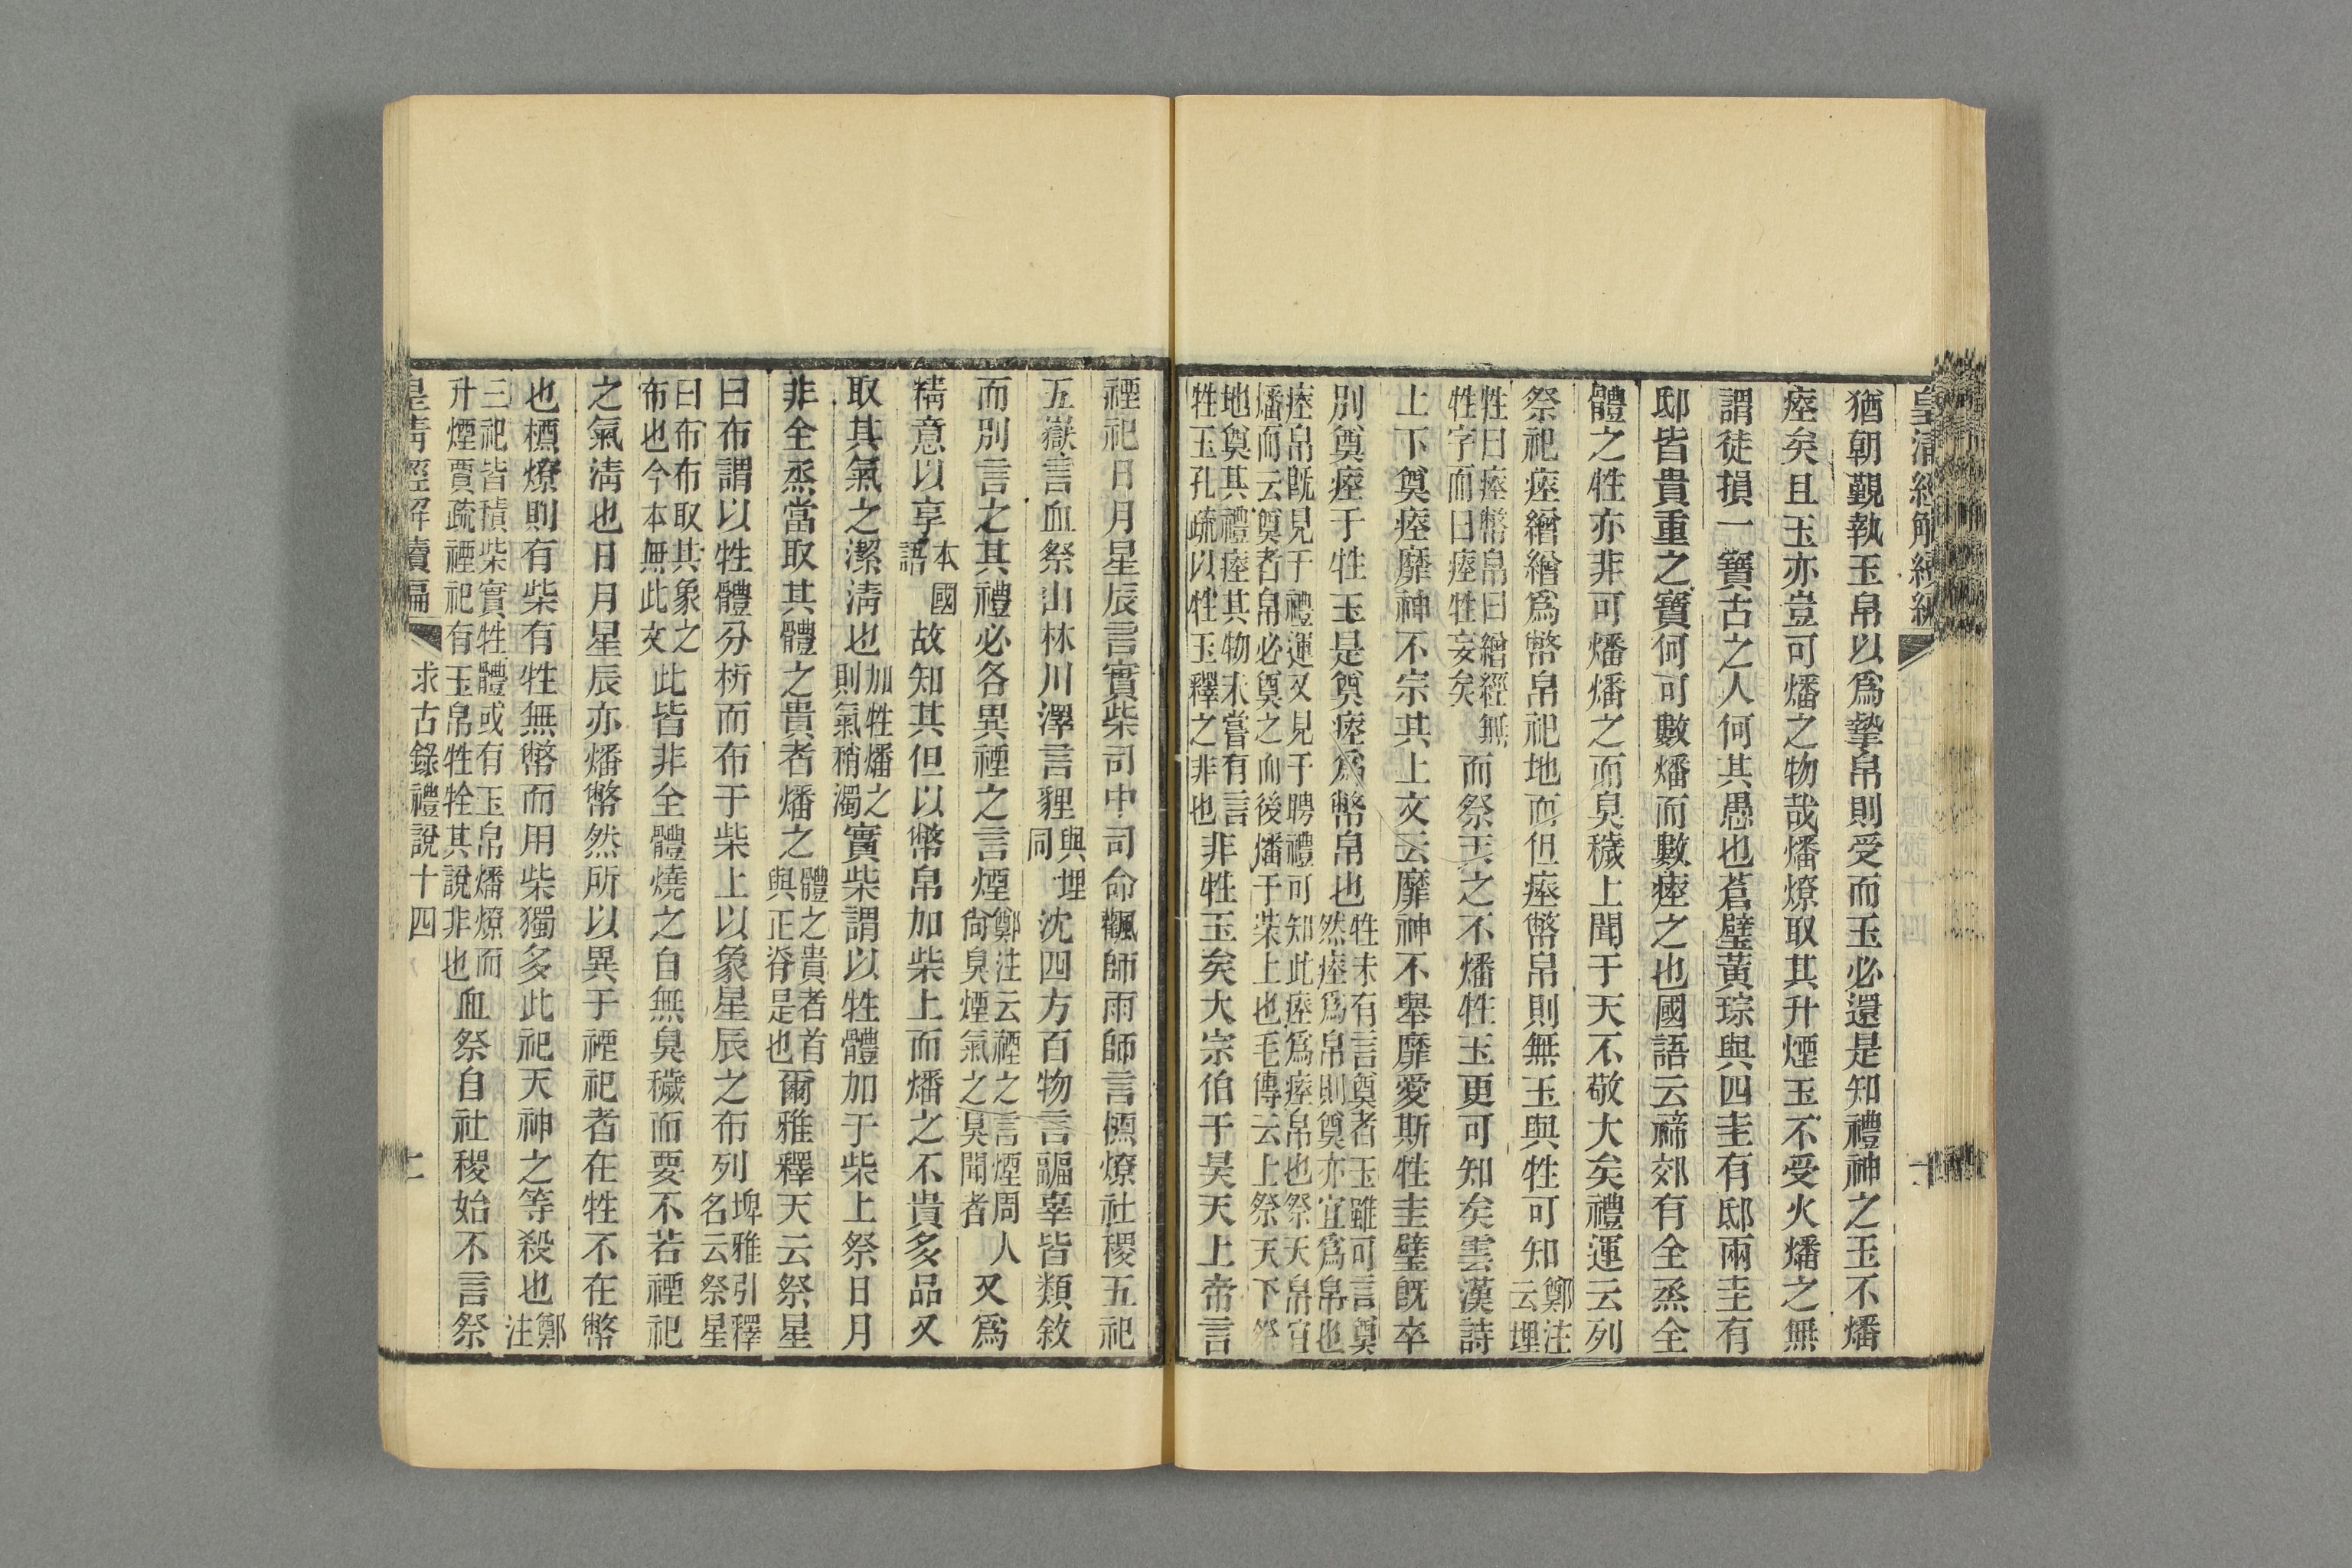 皇清經解續編
猶朝覲執玉帛以爲摯帛則受而玉必還是知禮神之玉不燔
瘞矣且玉亦豈可燔之物哉燔燎取其升煙玉不受火燔之無
謂徒損一寶古之人何其愚也蒼璧黃琮與四圭有邸兩圭有
邸皆貴重之寶何可數燔而數瘞之也國語云禘郊有全烝全
體之牲亦非可燔燔之而臭穢上聞于天不敬大矣禮運云列
祭祀瘞繒繒爲幣帛祀地而但瘞幣帛則無玉與牲可知鄭注云埋
牲曰瘞幣帛曰繒經無牲字而曰瘞牲妄矣而祭玉之不燔牲玉更可知矣雲漢詩
上下奠瘞靡神不宗其上文云靡神不舉靡愛斯牲圭璧既卒
別奠瘞于牲玉是奠瘞爲幣帛也牲未有言奠者玉雖可言奠然瘞爲帛則奠亦宜爲帛也
瘞帛既見于禮運又見于聘禮可知此瘞爲瘞帛也祭天帛宜燔而云奠者帛必奠之而後燔于柴上也毛傳云上祭天下祭
地奠其禮瘞其物未嘗有言牲玉孔疏以牲玉釋之非也非牲玉矣大宗伯于昊天上帝言
禋祀日月星辰言實柴司中司命飌師雨師言槱燎社稷五祀
五嶽言血祭山林川澤言貍與埋同沈四方百物言疈辜皆類敘
而別言之其禮必各異禋之言煙鄭注云禋之言煙周人尚臭煙氣之臭聞者又爲
精意以享本國語故知其但以幣帛加柴上而燔之不貴多品又
取其氣之潔淸也加牲燔之則氣稍濁實柴謂以牲體加于柴上祭日月
非全烝當取其體之貴者燔之體之貴者首與正脊是也爾雅釋天云祭星
曰布謂以牲體分析而布于柴上以象星辰之布列埤雅引釋名云祭星
曰布布取其象之布也今本無此文此皆非全體燒之自無臭穢而要不若禋祀
之氣淸也日月星辰亦燔幣然所以異于禋祀者在牲不在幣
也槱燎則有柴有牲無幣而用柴獨多此祀天神之等殺也鄭注
三祀皆積柴實牲體或有玉帛燔燎而升煙賈疏禋祀有玉帛牲牷其說非也血祭自社稷始不言祭
皇淸經解續編 求古錄禮說十四